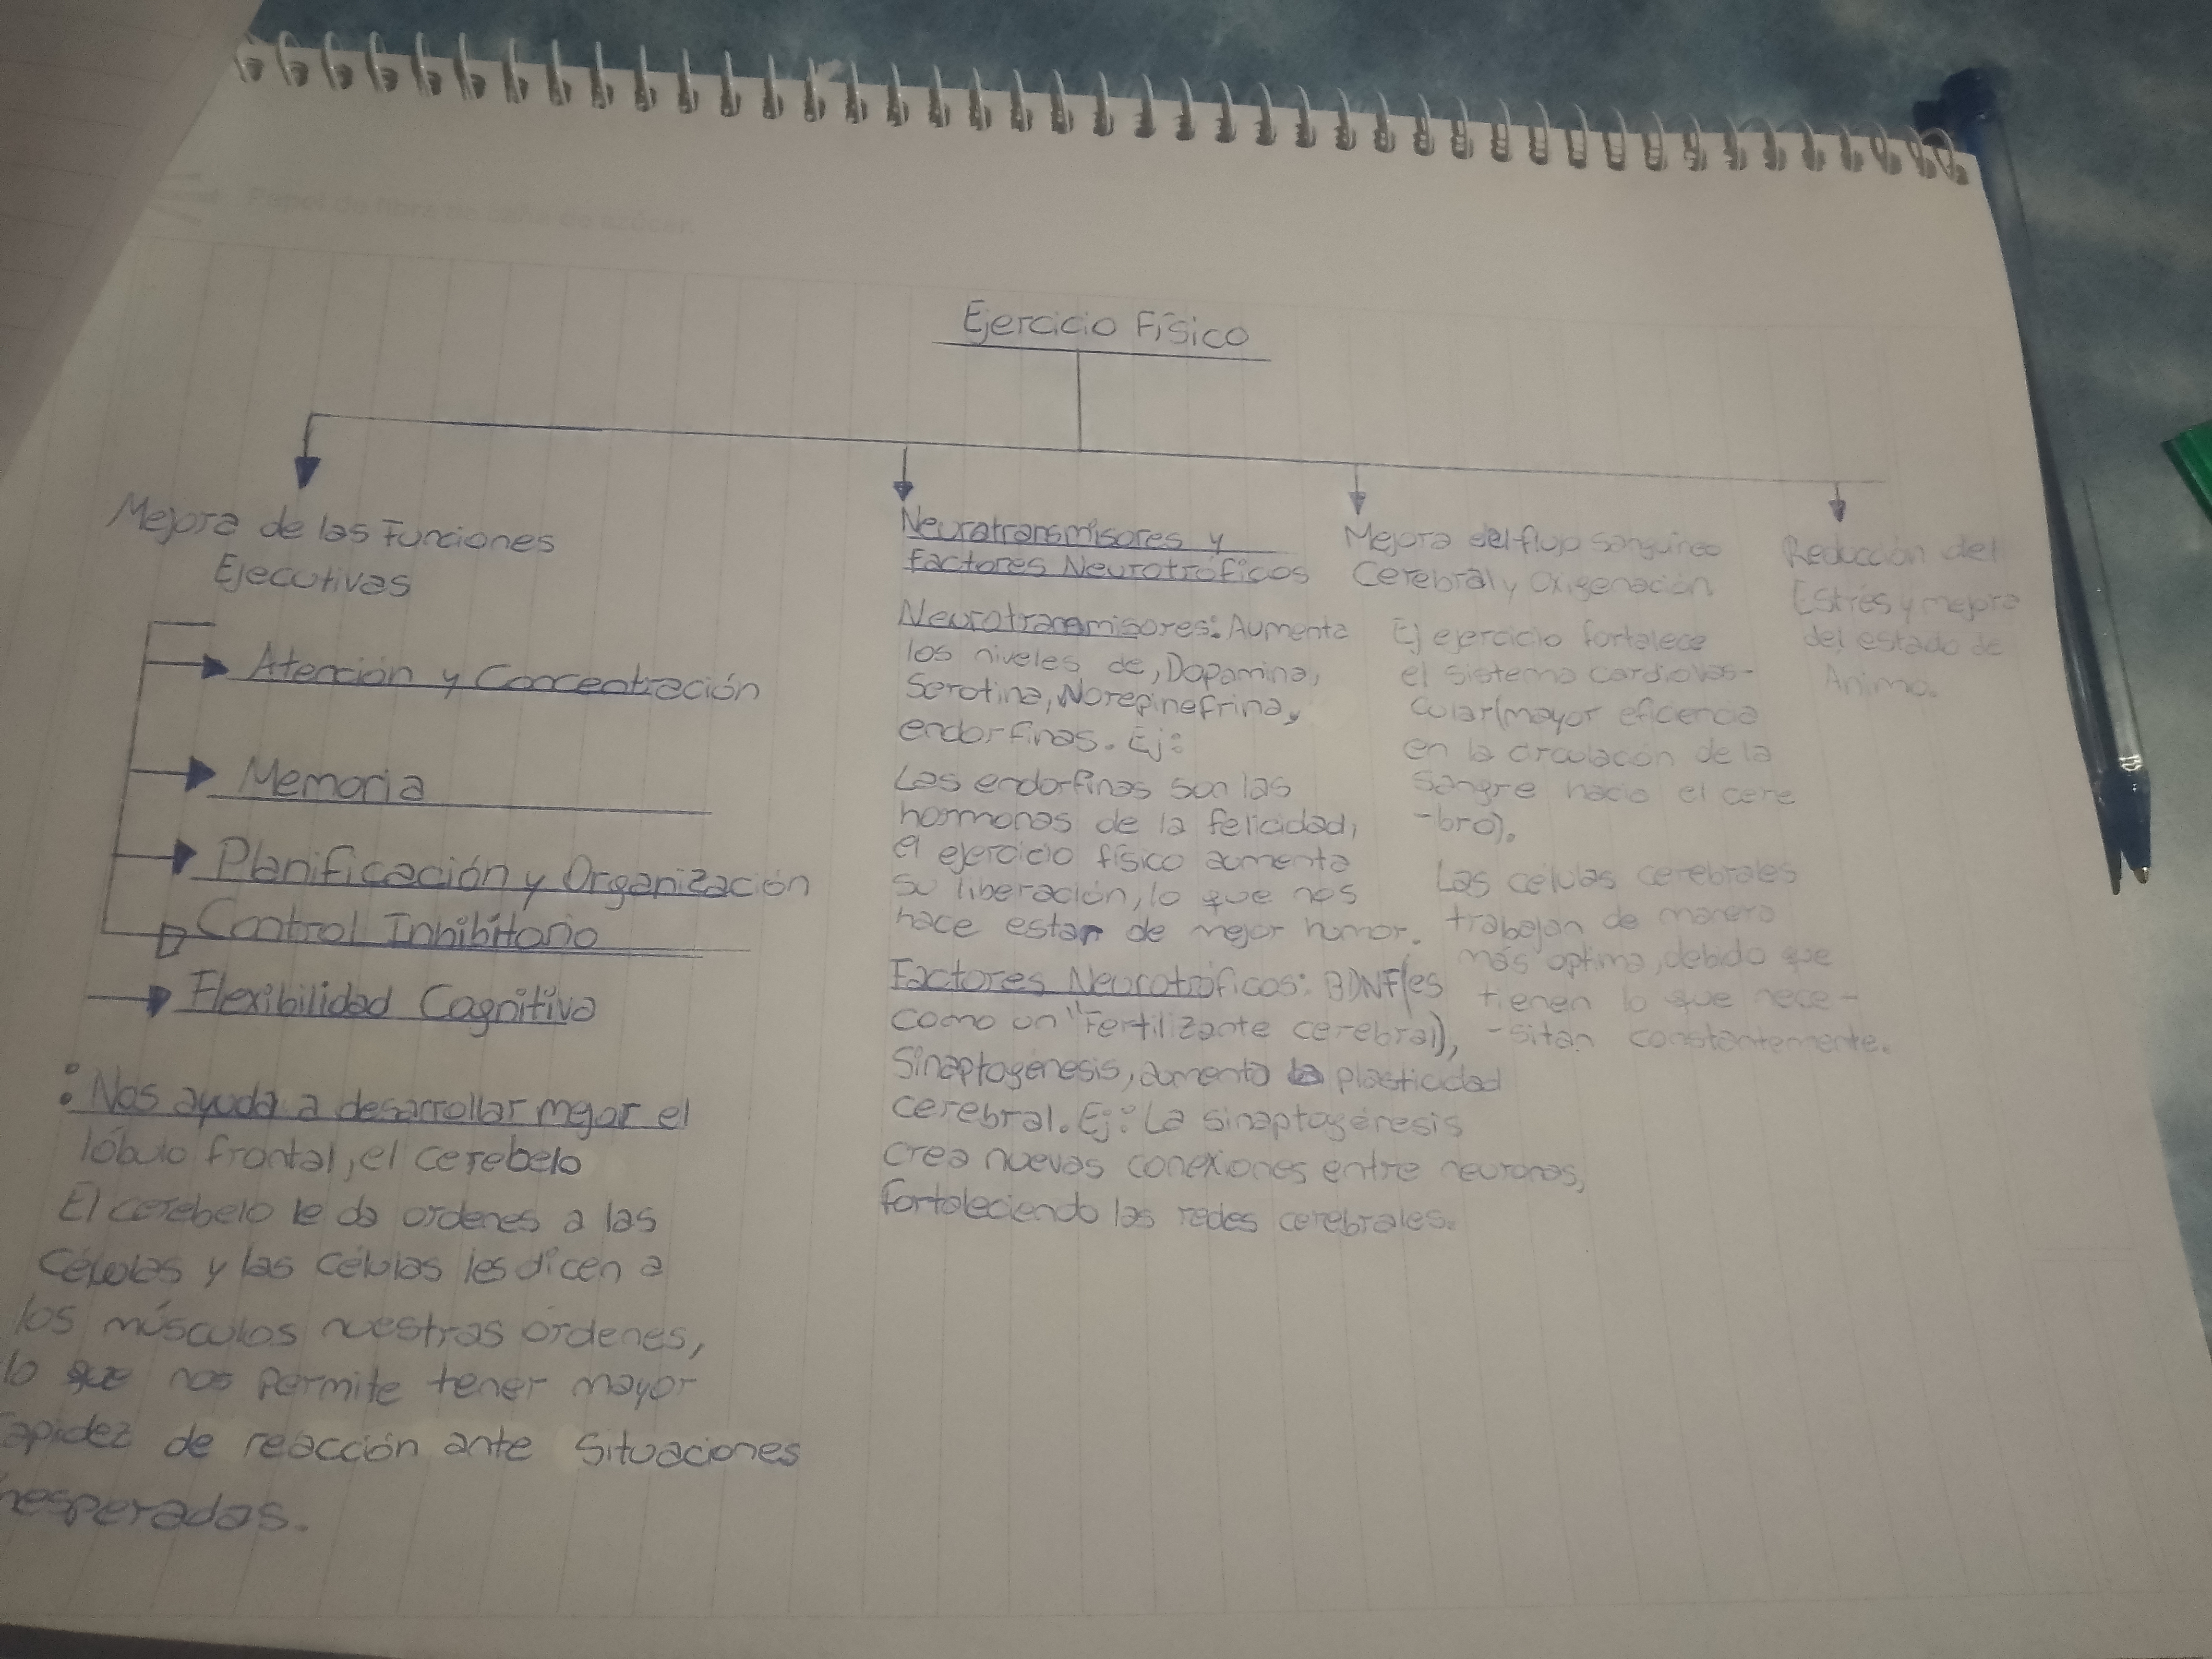 Papel de fibra de caña de azúcar.
Ejercicio Físico
Mejora de las Funciones
Ejecutivas
Atención y Concentración
Memoria
Planificación y Organización
Control Inhibitorio
Flexibilidad Cognitiva
: Nos ayuda a desarrollar mejor el
lóbulo frontal, el cerebelo
El cerebelo le da ordenes a las
Células y las Células les dicen a
los músculos nuestras ordenes,
lo que nos permite tener mayor
rapidez de reacción ante Situaciones
inesperadas.
Neuratransmisores y
Factores Neurotróficos
Neurotransmisores: Aumenta
los niveles de, Dopamina,
Serotina, Norepinefrina,
endorfinas. Ej:
Las endorfinas son las
hormonas de la felicidad,
el ejercicio físico aumenta
su liberación, lo que nos
hace estar de mejor humor.
Factores Neurotróficos: BDNF(es
como un "Fertilizante cerebral),
Sinaptogenesis, aumento la plasticidad
cerebral. Ej: La sinaptogénesis
crea nuevas conexiones entre neuronas,
fortaleciendo las redes cerebrales.
Mejora del flujo sanguineo
Cerebral y Oxigenación
El ejercicio fortalece
el sistema cardiovas-
cular(mayor eficiencia
en la circulación de la
sangre hacia el cere
-bro).
Las células cerebrales
trabajan de manera
más optima, debido que
tienen lo que nece-
-sitan constantemente.
Reducción del
Estrés y mejora
del estado de
Animo.